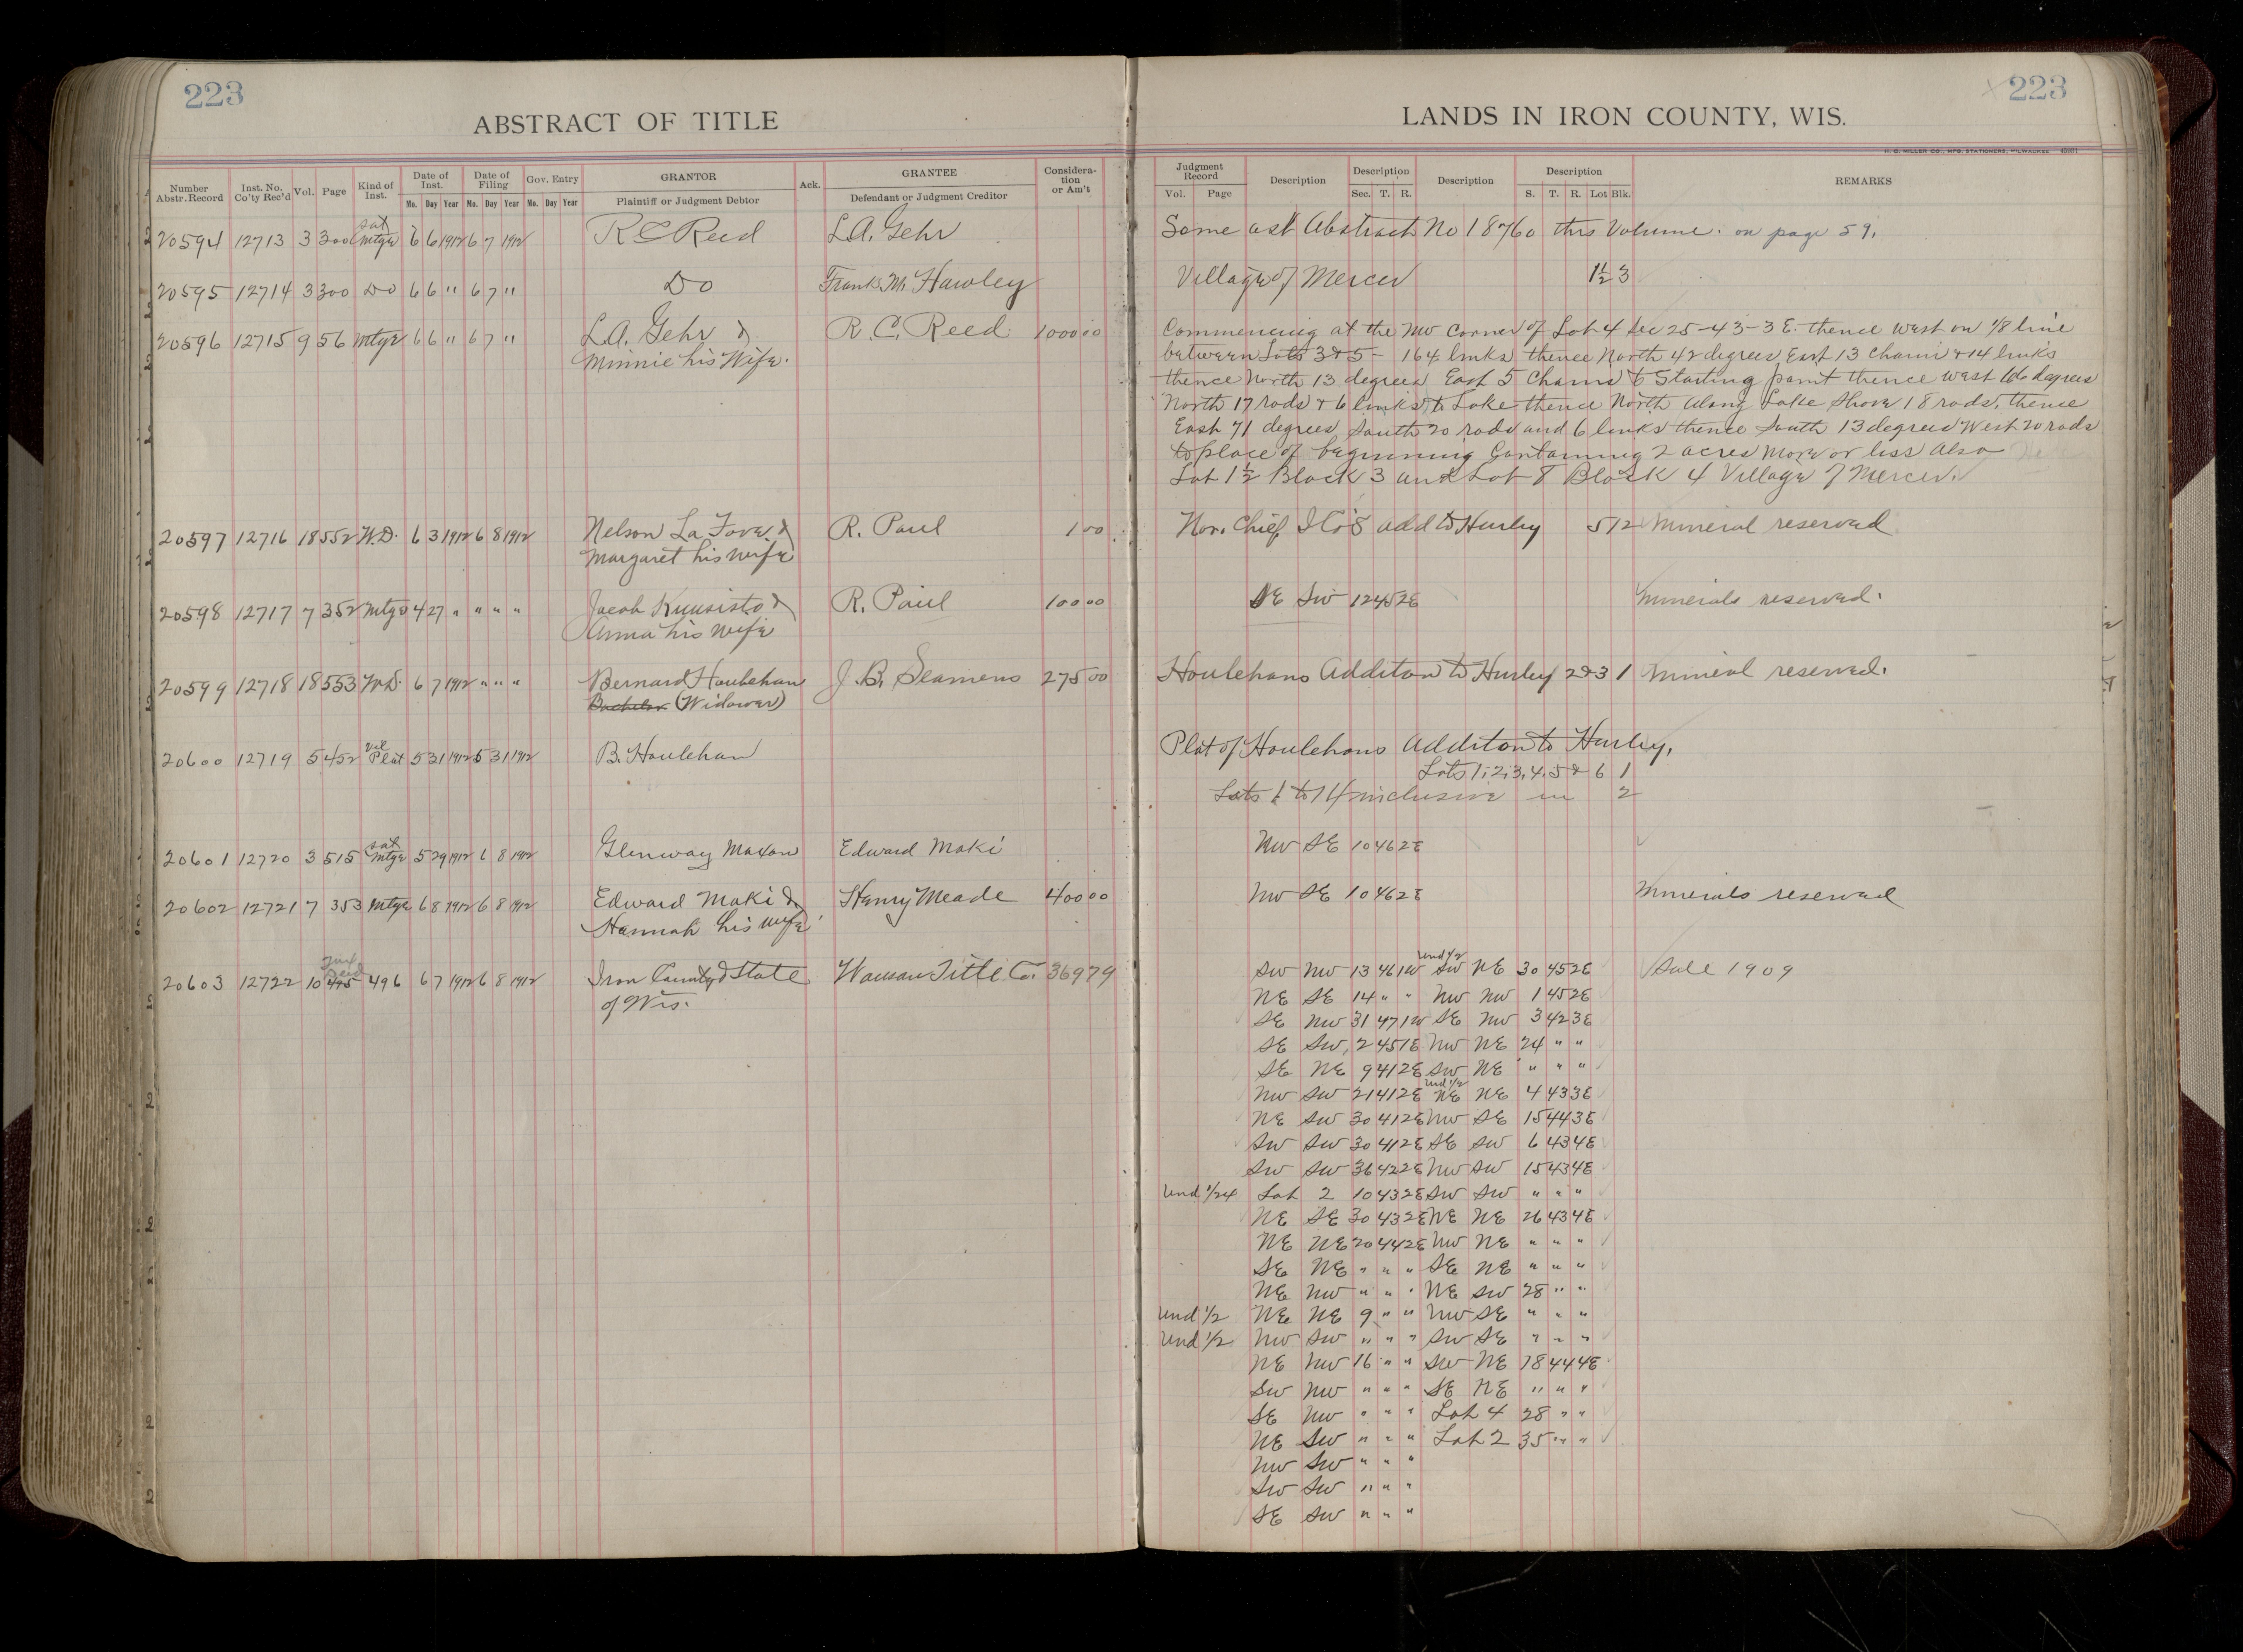 223
ABSTRACT OF TITLE
Number Abstr. Record Inst. No. Co'ty Rec'd Vol. Page Kind of Inst. Date of Inst. Mo. Day Year Date of Filing Mo. Day Year Gov. Entry Mo. Day Year GRANTOR Plaintiff or Judgment Debtor Ack. GRANTEE Defendant or Judgment Creditor Considera-tion or Am't
20594 12713 3 300 Sat Mtge 6 6 1912 6 7 1912 R C Reed L.A. Gehr
20595 12714 3 300 Do 6 6 " 6 7 " Do Frank M Hawley
20596 12715 9 56 Mtge 6 6 " 6 7 " L.A. Gehr & R. C. Reed 1000 00
Minnie his Wife.
20597 12716 18 552 W.D. 6 3 1912 6 8 1912 Nelson La Fave & R. Paul 1 00
Margaret his wife
20598 12717 7 352 Mtge 4 27 " " " " Jacob Kuusisto & R. Paul 100 00
Anna his wife
20599 12718 18 553 W.D. 6 7 1912 " " " Bernard Houlehan J. B. Seamens 275 00
Bachelor (Widower)
20600 12719 5 452 Vil Plat 5 31 1912 5 31 1912 B. Houlehan
20601 12720 3 515 Sat Mtge 5 29 1912 6 8 1912 Glenway Maxon Edward Maki
20602 12721 7 353 Mtge 6 8 1912 6 8 1912 Edward Maki & Henry Meade 400 00
Hannah his wife
20603 12722 10 495 496 Tax Deed 6 7 1912 6 8 1912 Iron County & State Wausau Title Co. 369 79
of Wis.
223
LANDS IN IRON COUNTY, WIS.
H. C. MILLER CO., MFG. STATIONERS, MILWAUKEE
Judgment Record Vol. Page Description Description Sec. T. R. Description Description S. T. R. Lot Blk. REMARKS
Same as Abstract No 18760 this Volume. on page 59.
Village of Mercer 1½ 3
Commencing at the NW corner of Lot 4 Sec 25-43-3 E. thence West on 1/8 line
between Lots 3&5 - 164 links thence North 42 degrees East 13 Chains & 14 links
thence North 13 degrees East 5 Chains to Starting point thence West 66 degrees
North 17 rods & 6 links to Lake thence North along Lake Shore 18 rods, thence
East 71 degrees South 20 rods and 6 links thence South 13 degrees West 20 rods
to place of beginning Containing 2 acres more or less Also
Lot 1½ Block 3 and Lot 8 Block 4 Village of Mercer.
Nor. Chief I Co's add to Hurley 5 12 Mineral reserved
SE SW 12 45 2E Minerals reserved.
Houlehans Additon to Hurley 2&3 1 Mineral reserved.
Plat of Houlehans Additon to Hurley.
Lots 1, 2, 3, 4, 5 & 6 1
Lots 1 to 14 inclusive in 2
NW SE 10 46 2E
NW SE 10 46 2E Minerals reserved
SW NW 13 46 1W und 1/2 SW NE 30 45 2E Sale 1909
NE SE 14 " " NW NW 1 45 2E
SE NW 31 47 1W SE NW 3 42 3E
SE SW 2 45 1E NW NE 24 " "
SE NE 9 41 2E SW NE " " "
NW SW 21 41 2E und 1/2 NE NE 4 43 3E
NE SW 30 41 2E NW SE 15 44 3E
SW SW 30 41 2E SE SW 6 43 4E
SW SW 36 42 2E NW SW 15 43 4E
Und 1/24 Lot 2 10 43 2E SW SW " " "
NE SE 30 43 2E NE NE 26 43 4E
NE NE 20 44 2E NW NE " " "
SE NE " " " SE NE " " "
NE NW " " " NE SW 28 " "
Und 1/2 NE NE 9 " " NW SE " " "
Und 1/2 NW SW " " " SW SE " " "
NE NW 16 " " SW NE 18 44 4E
SW NW " " " SE NE " " "
SE NW " " " Lot 4 28 " "
NE SW " " " Lot 2 35 " "
NW SW " " "
SW SW " " "
SE SW " " "